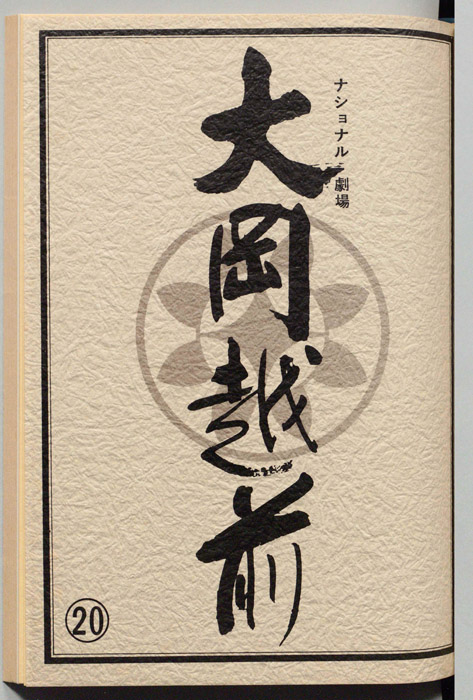 ナショナル劇場
大岡越前
⑳